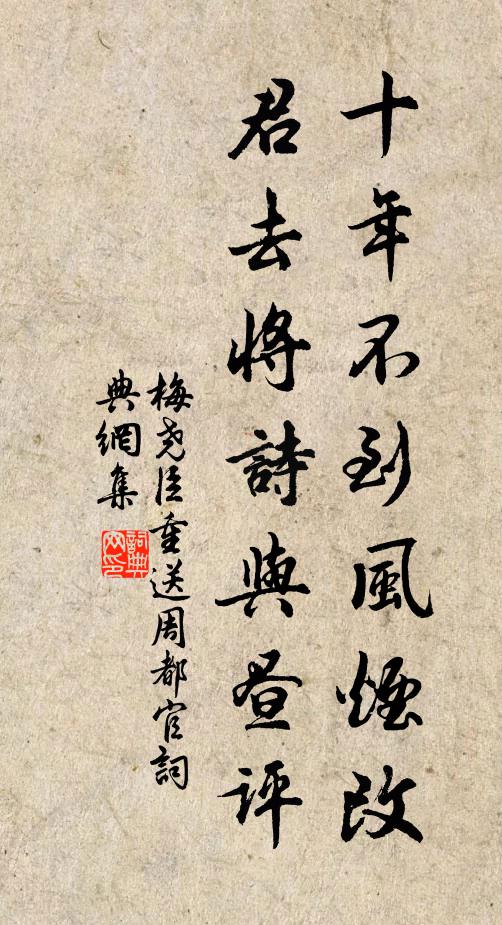 十年不到風煙改
君去將詩與畫評
梅堯臣重送周都官詞
典網集
詞典
网印